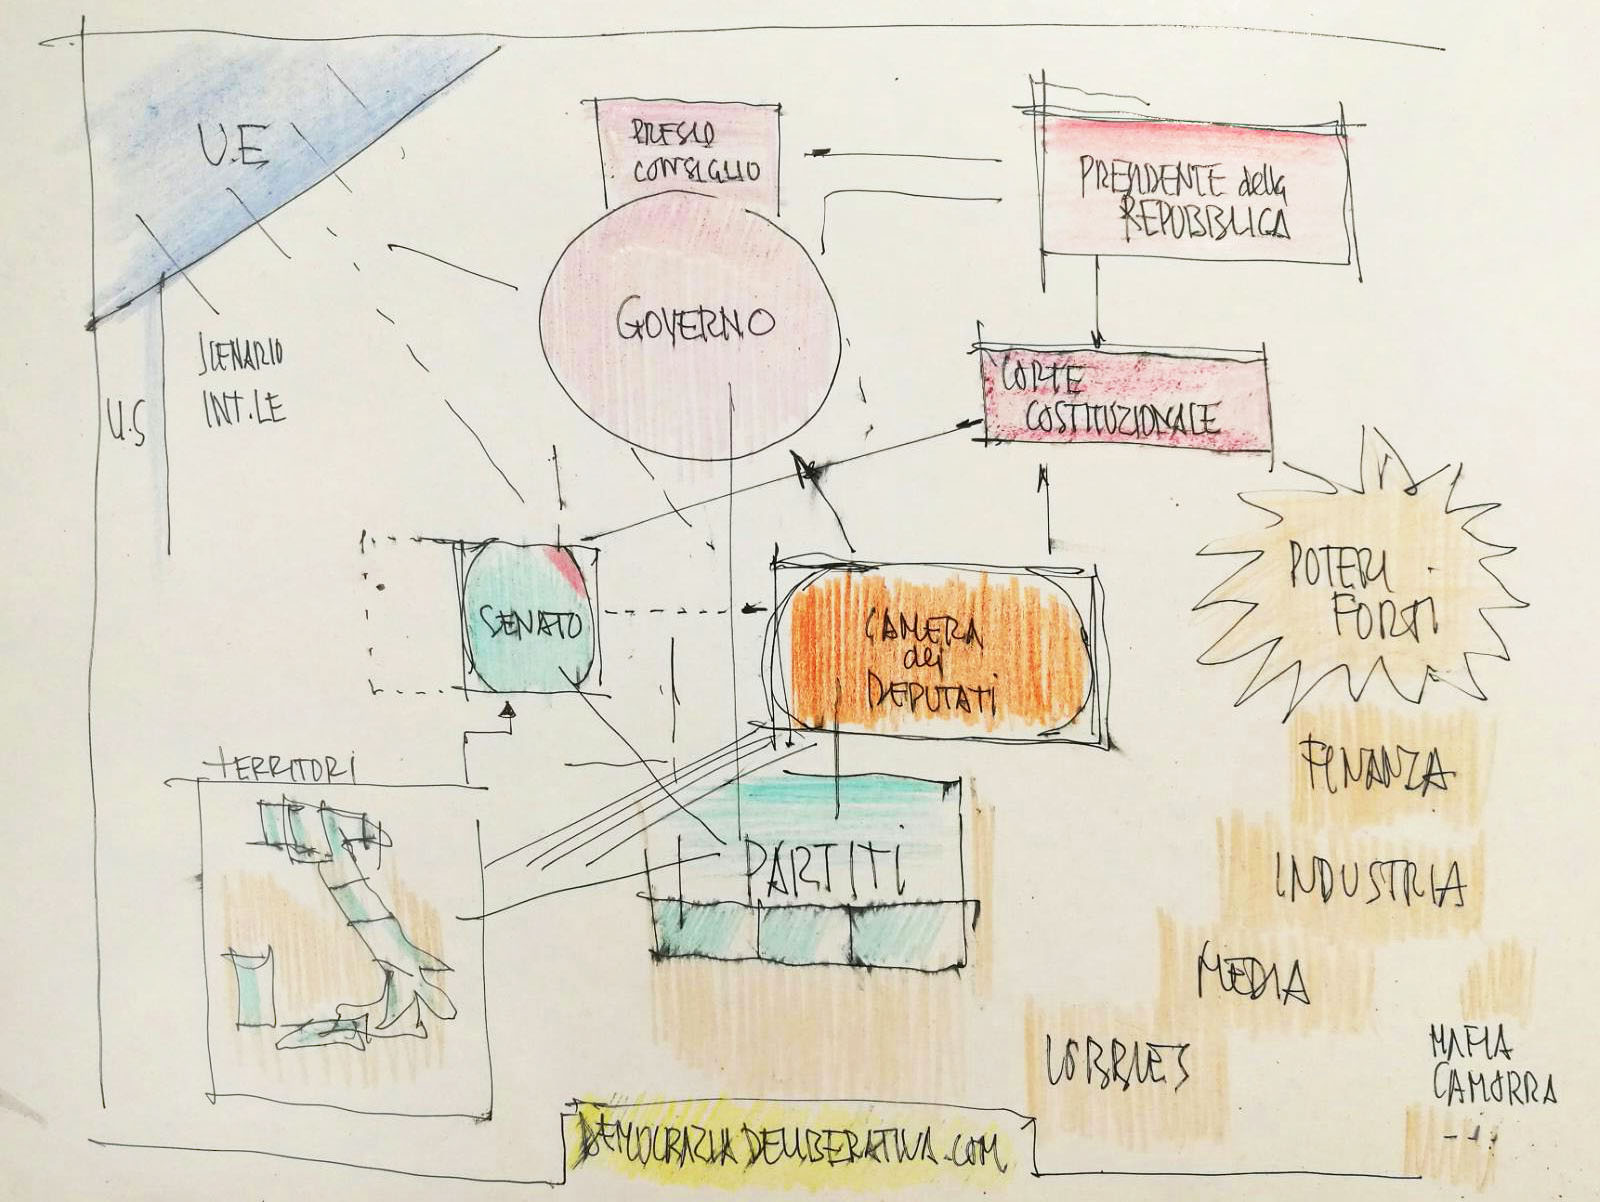 U.E
PRES.D
CONSIGLIO
PRESIDENTE della
REPUBBLICA
GOVERNO
SCENARIO
INT.LE
U.S
CORTE
COSTITUZIONALE
POTERI
FORTI
SENATO
CAMERA
dei
DEPUTATI
TERRITORI
FINANZA
PARTITI
INDUSTRIA
MEDIA
LOBBIES
MAFIA
CAMORRA
DEMOCRAZIA DELIBERATIVA.COM